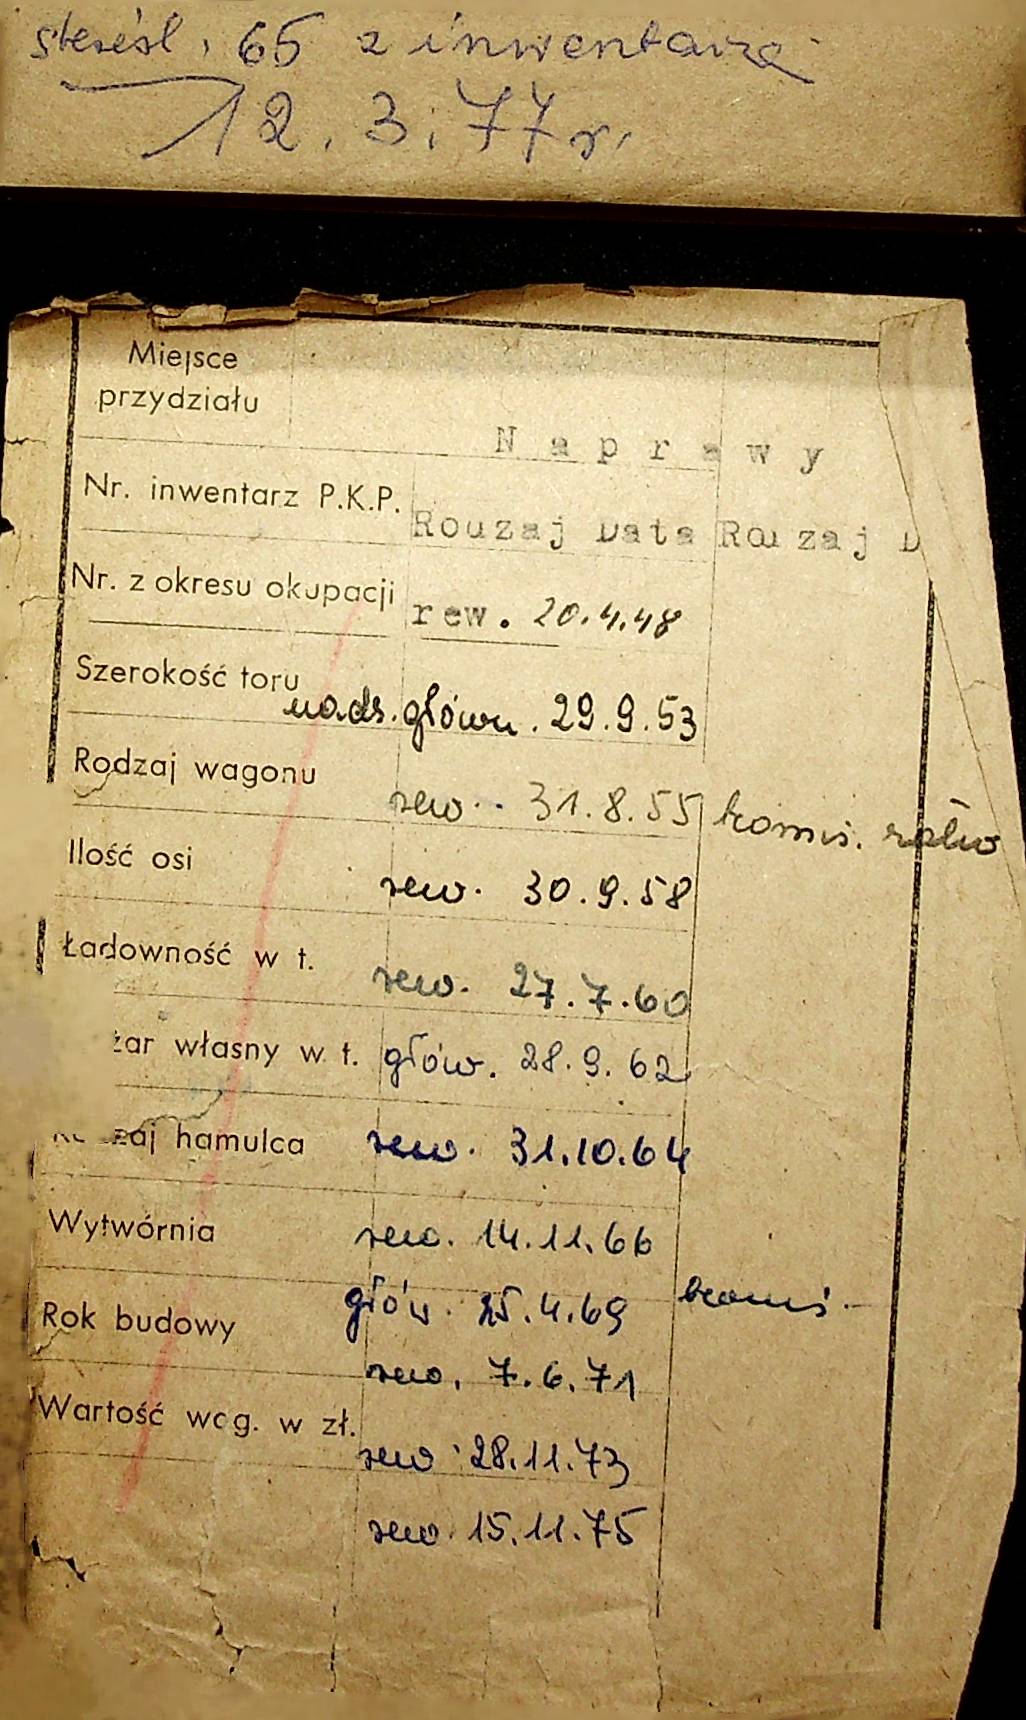 skreśl. 65 z inwentarza
12.3.77 r.
Miejsce
przydziału
Naprawy
Nr. inwentarz P.K.P.
Rodzaj Data Rodzaj D
Nr. z okresu okupacji
rew. 20.4.48
Szerokość toru
nads. główn. 29.9.53
Rodzaj wagonu
rew. 31.8.55 komis.
Ilość osi
rew. 30.9.58
Ładowność w t.
rew. 27.7.60
żar własny w t. głów. 28.9.62
zaj hamulca rew. 31.10.64
Wytwórnia
rew. 14.11.66
Rok budowy
głów. 25.4.69 komis.
rew. 7.6.71
Wartość wag. w zł.
rew. 28.11.73
rew. 15.11.75